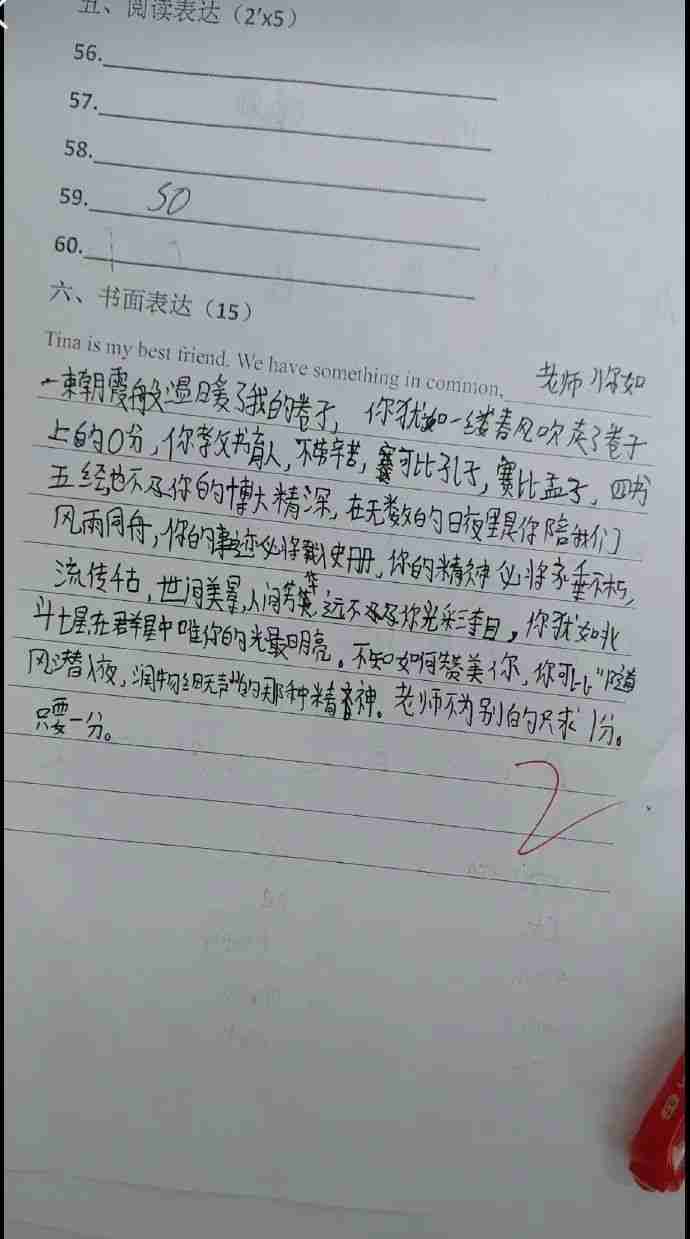 五、阅读表达（2'x5）
56.
57.
58.
59. SO
60.
六、书面表达（15）
Tina is my best friend. We have something in common, 老师,你如
一束朝霞般温暖了我的卷子，你犹如一缕春风吹走了卷子
上的0分，你教书育人，不带辛苦，赛可比孔子，赛比孟子，四书
五经也不及你的博大精深，在无数的日夜里是你陪我们
风雨同舟，你的事迹必将载入史册，你的精神必将永垂不朽，
流传千古，世间美景，人间芳华，远不及你光彩夺目，你犹如北
斗七星，在群星中唯你的光最明亮。不知如何赞美你，你可比"随
风潜入夜，润物细无声"的那种精神。老师不为别的只求1分。
只要一分。
2